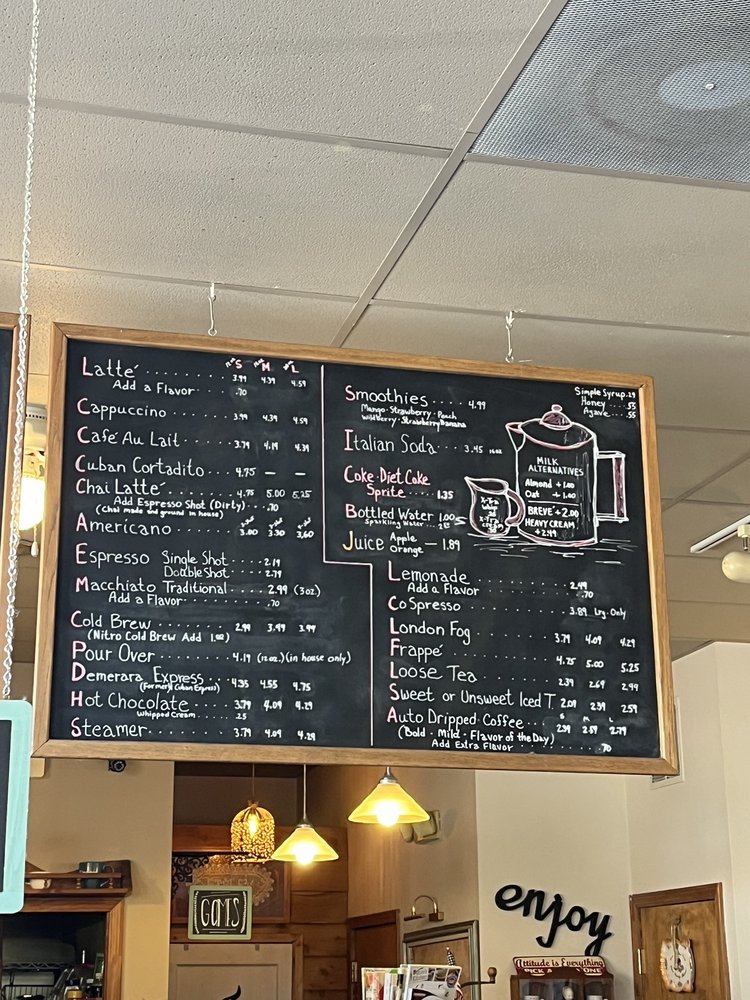 S M L
Latté 3.99 4.39 4.59
Add a Flavor .70
Cappuccino 3.99 4.39 4.59
Café Au Lait 3.79 4.19 4.39
Cuban Cortadito 4.75 — —
Chai Latté 4.75 5.00 5.25
Add Espresso Shot (Dirty) .70
(Chai made and ground in house)
Americano 3.00 3.30 3.60
Espresso Single Shot 2.19
Double Shot 2.79
Macchiato Traditional 2.99 (3oz)
Add a Flavor .70
Cold Brew 2.99 3.49 3.99
(Nitro Cold Brew Add 1.00)
Pour Over 4.19 (12oz.) (in house only)
Demerara Express 4.35 4.55 4.75
(Formerly Cuban Express)
Hot Chocolate 3.79 4.09 4.29
Whipped Cream .25
Steamer 3.79 4.09 4.29
Smoothies 4.99
Mango · Strawberry · Peach
Wildberry · Strawberry Banana
Italian Soda 3.45 16oz
Coke · Diet Coke
Sprite 1.35
Bottled Water 1.00
Sparkling Water
Juice Apple — 1.89
Orange
Simple Syrup .29
Honey .55
Agave .55
MILK
ALTERNATIVES
Almond + 1.00
Oat + 1.00
BREVE + 2.00
HEAVY CREAM
+ 2.49
Lemonade 2.49
Add a Flavor .70
CoSpresso 3.89 Lrg. Only
London Fog 3.79 4.09 4.29
Frappé 4.75 5.00 5.25
Loose Tea 2.39 2.69 2.99
Sweet or Unsweet Iced T. 2.09 2.39 2.59
S M L
Auto Dripped Coffee 2.39 2.59 2.79
(Bold · Mild · Flavor of the Day)
Add Extra Flavor .70
GAMES
enjoy
Attitude is Everything
PICK A ONE